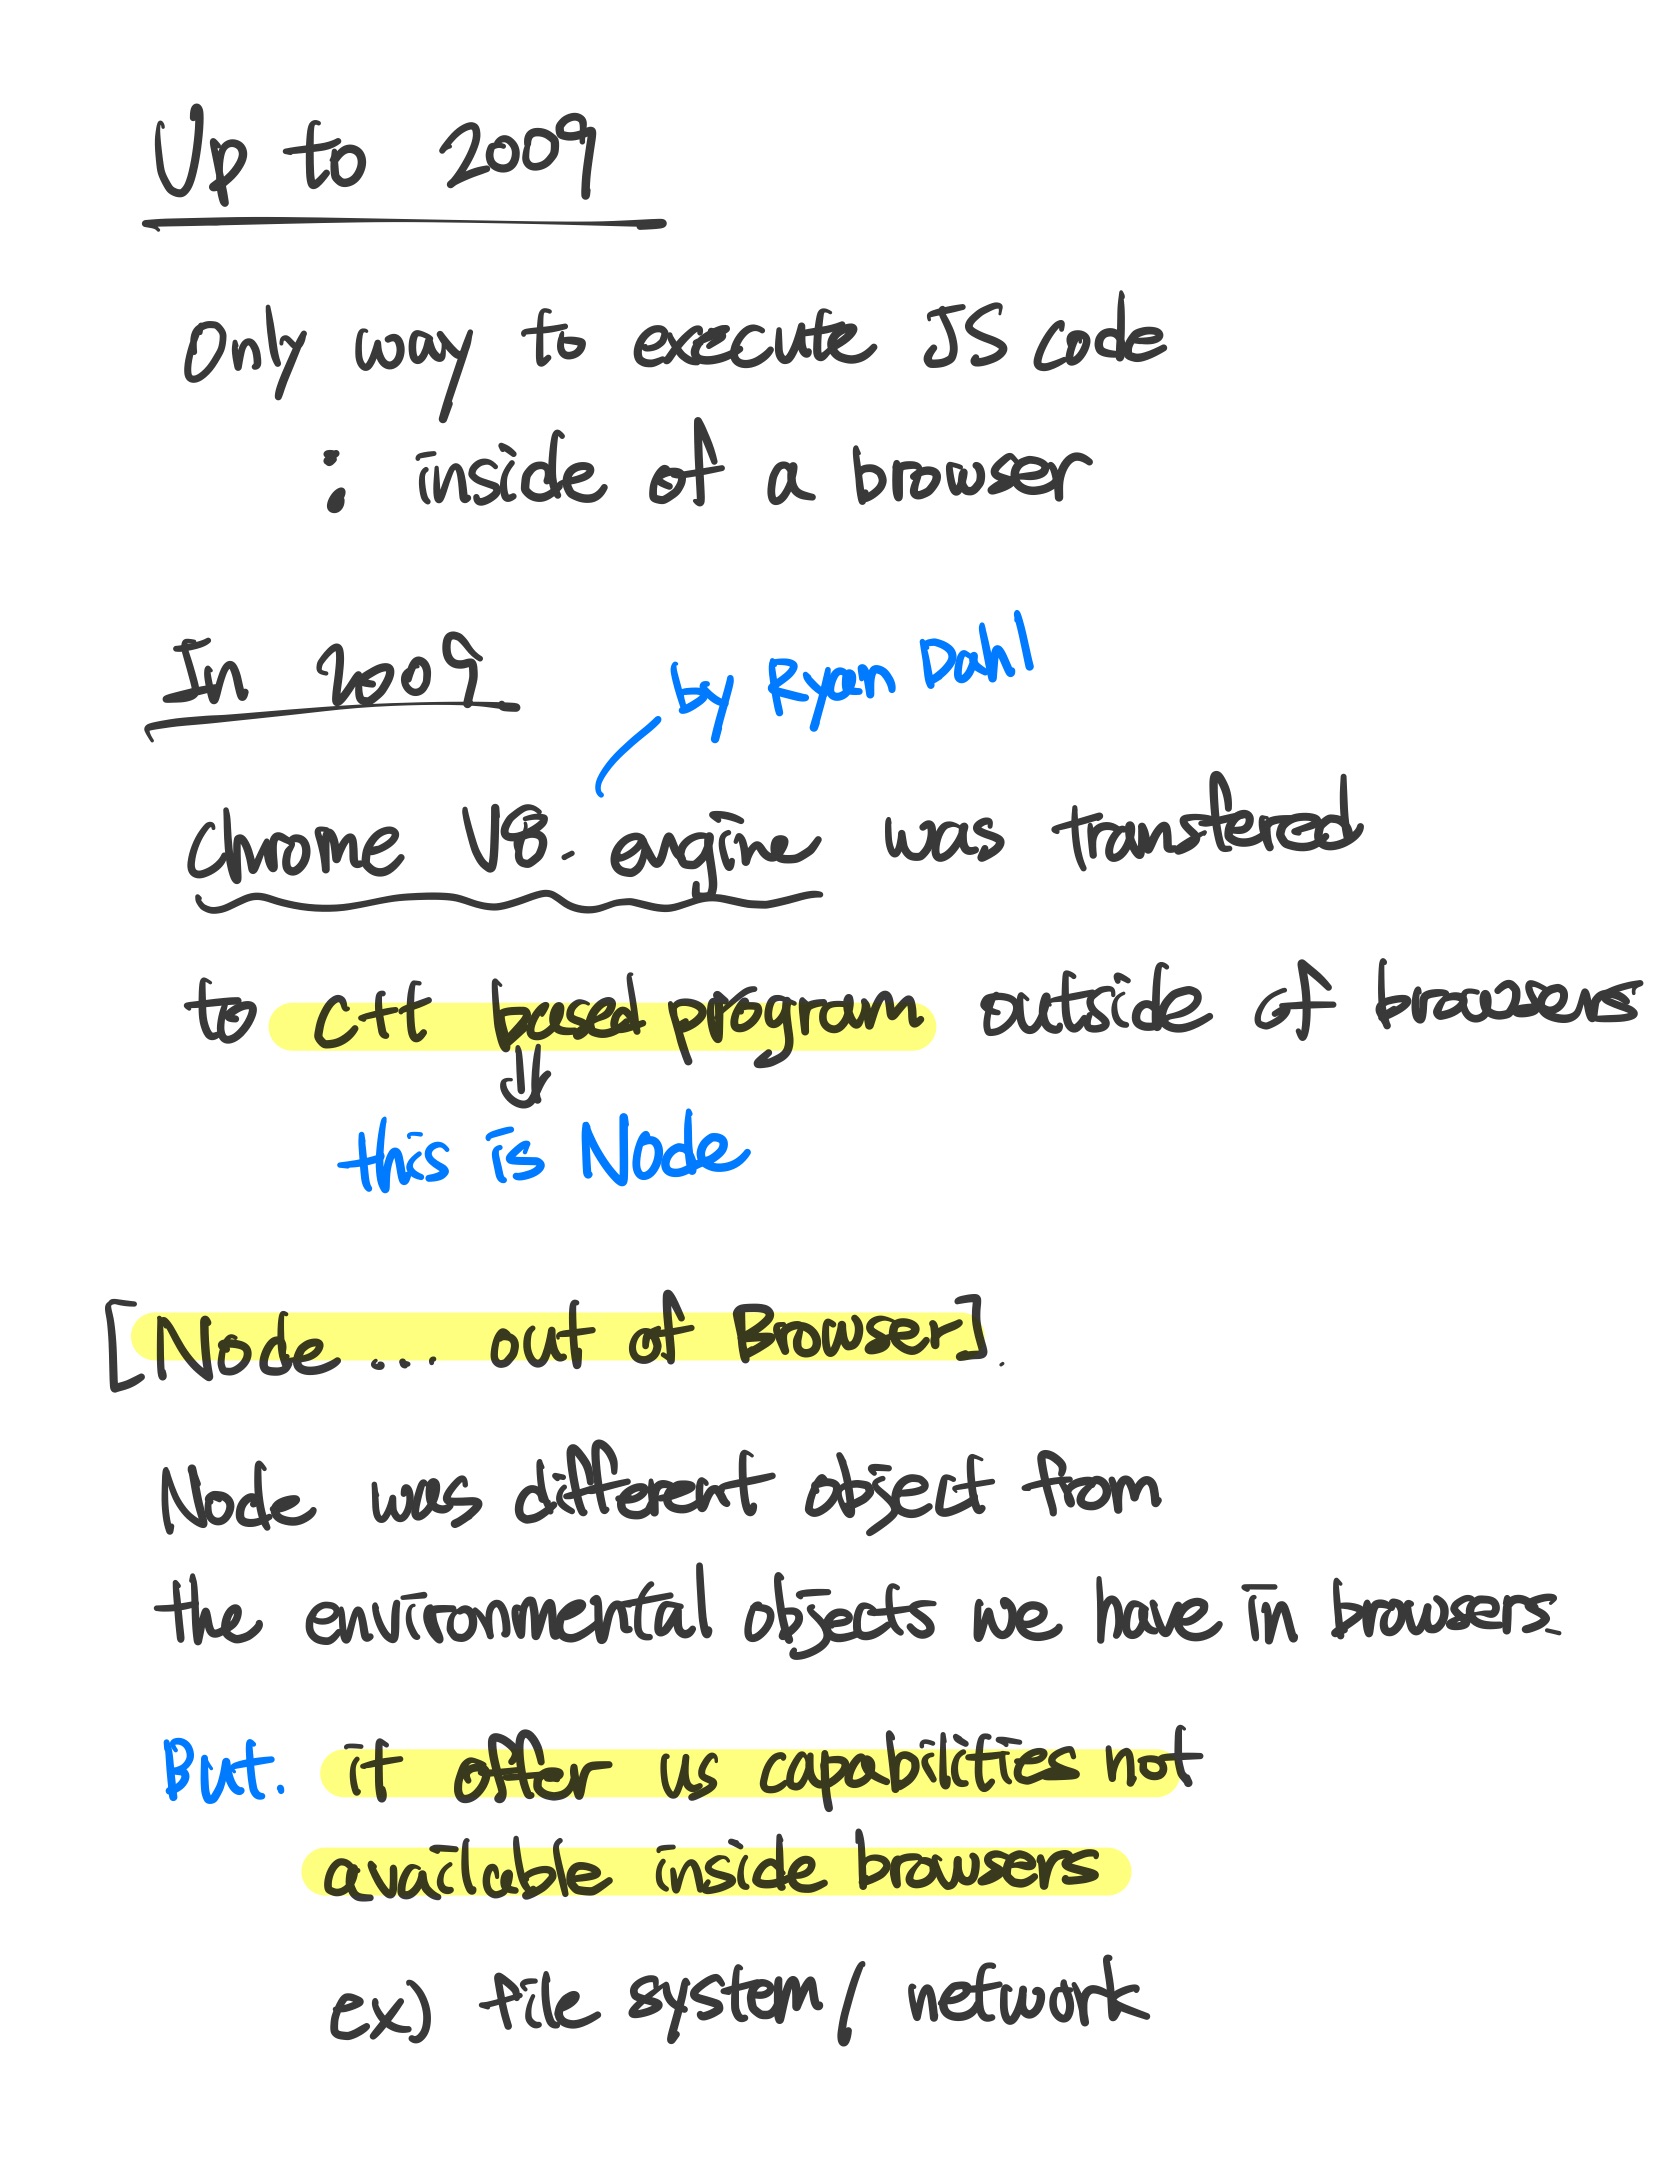 Up to 2009
Only way to execute JS code
: inside of a browser
In 2009
by Ryan Dahl
Chrome V8. engine was transfered
to C++ based program outside of browsers
this is Node
[Node ... out of Browser].
Node was different object from
the environmental objects we have in browsers.
But. it offer us capabilities not
available inside browsers
ex) file system / network